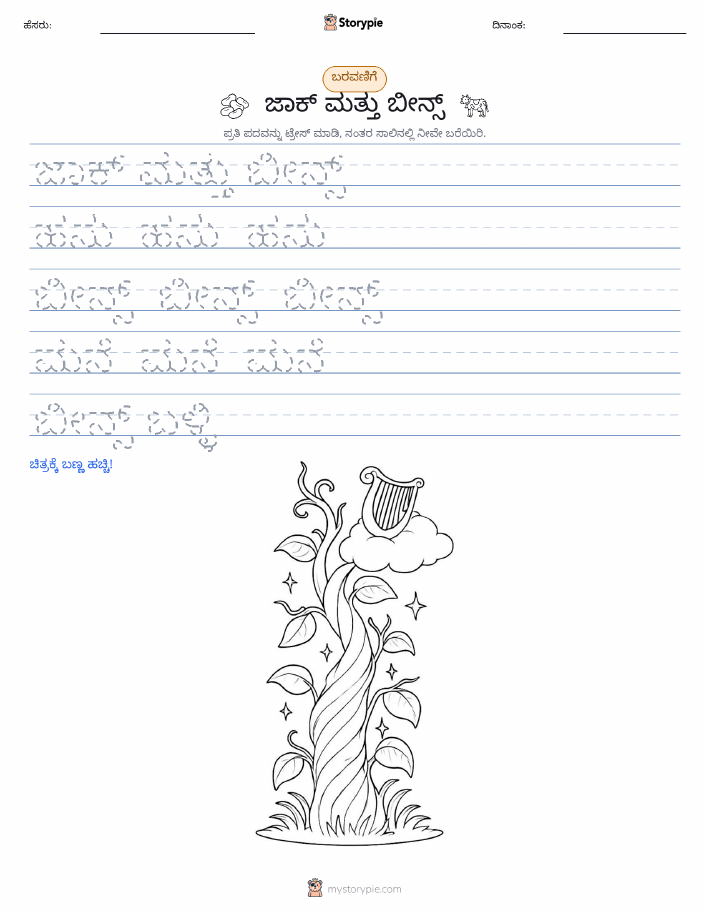 ಹೆಸರು:
Storypie
ದಿನಾಂಕ:
ಬರವಣಿಗೆ
ಜಾಕ್ ಮತ್ತು ಬೀನ್ಸ್
ಪ್ರತಿ ಪದವನ್ನು ಟ್ರೇಸ್ ಮಾಡಿ, ನಂತರ ಸಾಲಿನಲ್ಲಿ ನೀವೇ ಬರೆಯಿರಿ.
ಜಾಕ್ ಮತ್ತು ಬೀನ್ಸ್
ಹಸು ಹಸು ಹಸು
ಬೀನ್ಸ್ ಬೀನ್ಸ್ ಬೀನ್ಸ್
ಮನೆ ಮನೆ ಮನೆ
ಬೀನ್ಸ್ ಬಳ್ಳಿ
ಚಿತ್ರಕ್ಕೆ ಬಣ್ಣ ಹಚ್ಚಿ!
mystorypie.com